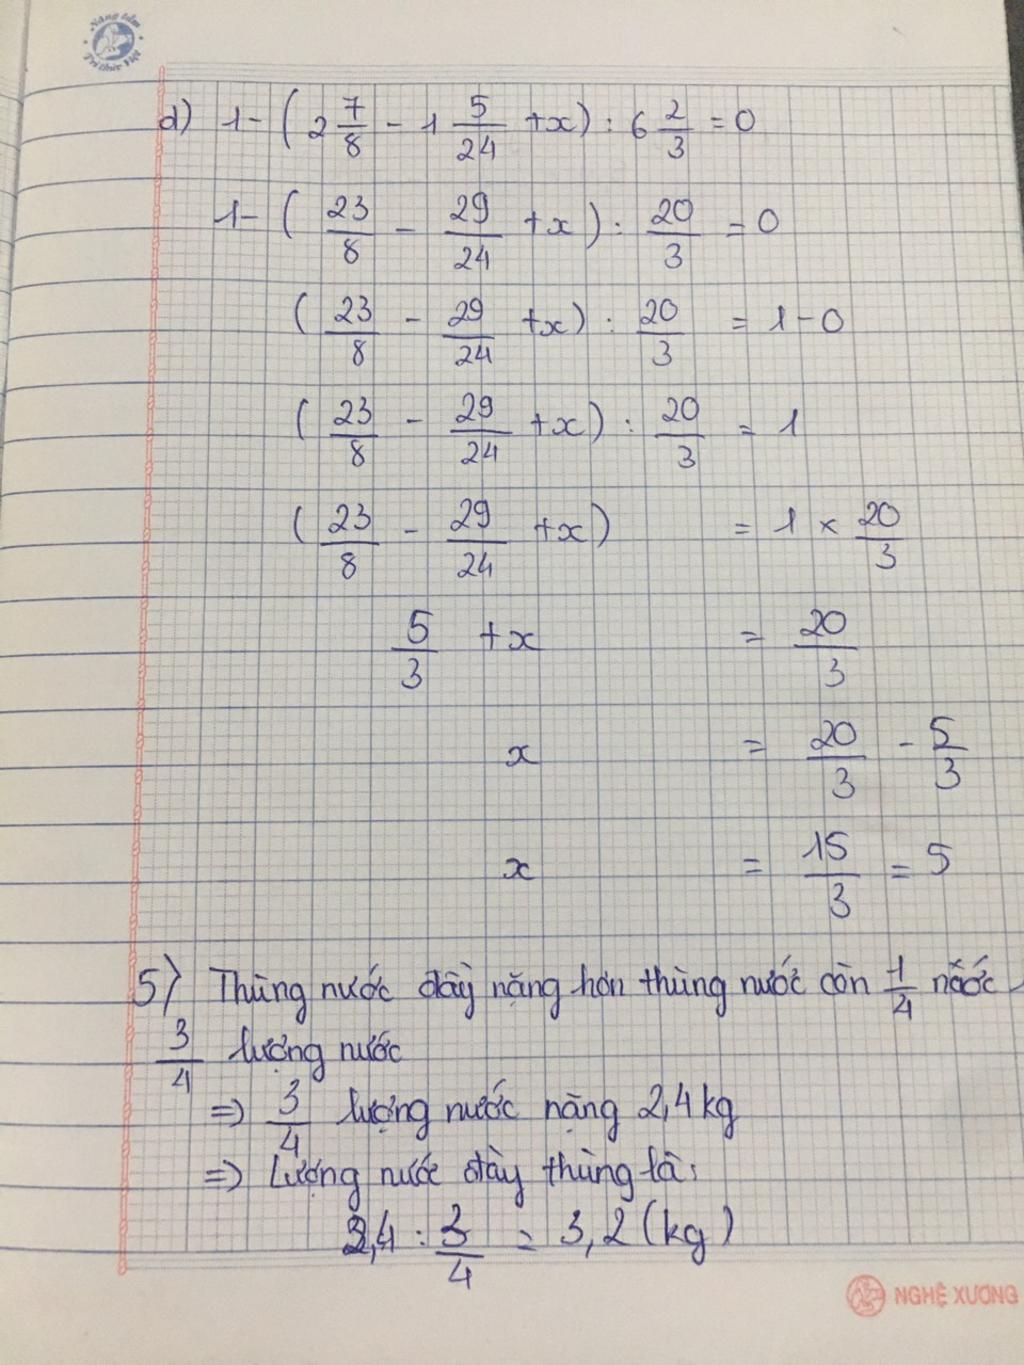 Nâng tầm
Tri thức Việt
d) 1 - (2 7/8 - 1 5/24 + x) : 6 2/3 = 0
1 - (23/8 - 29/24 + x) : 20/3 = 0
(23/8 - 29/24 + x) : 20/3 = 1 - 0
(23/8 - 29/24 + x) : 20/3 = 1
(23/8 - 29/24 + x) = 1 × 20/3
5/3 + x = 20/3
x = 20/3 - 5/3
x = 15/3 = 5
5) Thùng nước đầy nặng hơn thùng nước còn 1/4 nước
3/4 lượng nước
=> 3/4 lượng nước nặng 2,4 kg
=> Lượng nước đầy thùng là:
2,4 : 3/4 = 3,2 (kg)
NGHỆ XƯƠNG